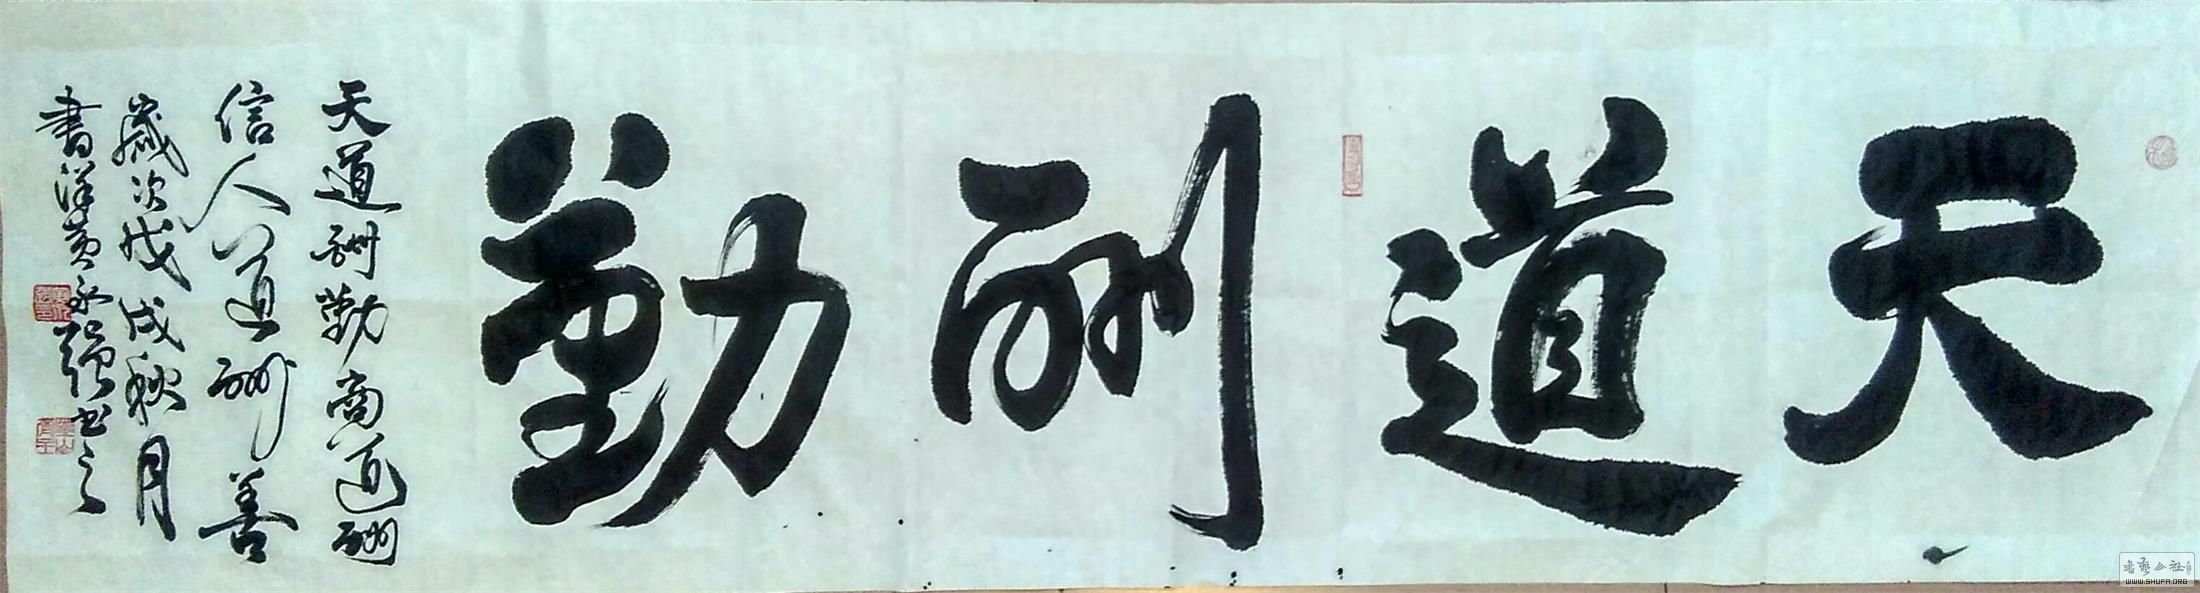 天道酬勤
天道酬勤商道酬
信人道酬善
歲次戊戌秋月
書洋黄永强书之
书艺公社
WWW.SHUFA.ORG